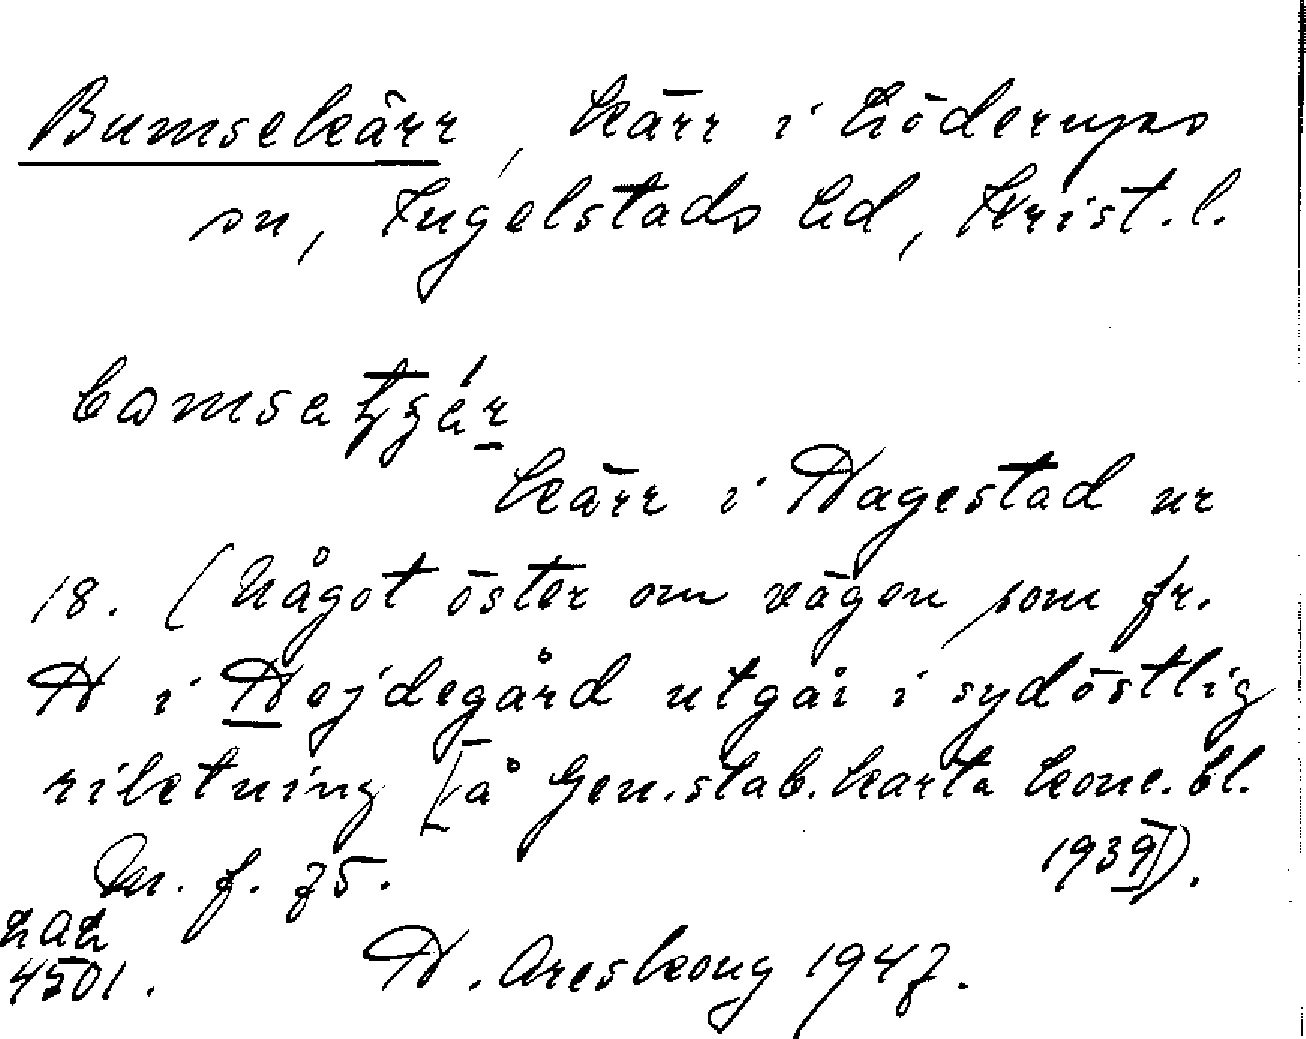 Bumsekärr, kärr i Löderups
sn, Ingelstads hd, Krist. l.
bamsa kjár
kärr i Hagestad nr
18. (Något öster om vägen som fr.
H i Hejdegård utgår i sydöstlig
riktning [å Gen.stab.karta konc.bl.
1939]).
m. f. 75.
LAL
4501.
H. Areskoug 1947.